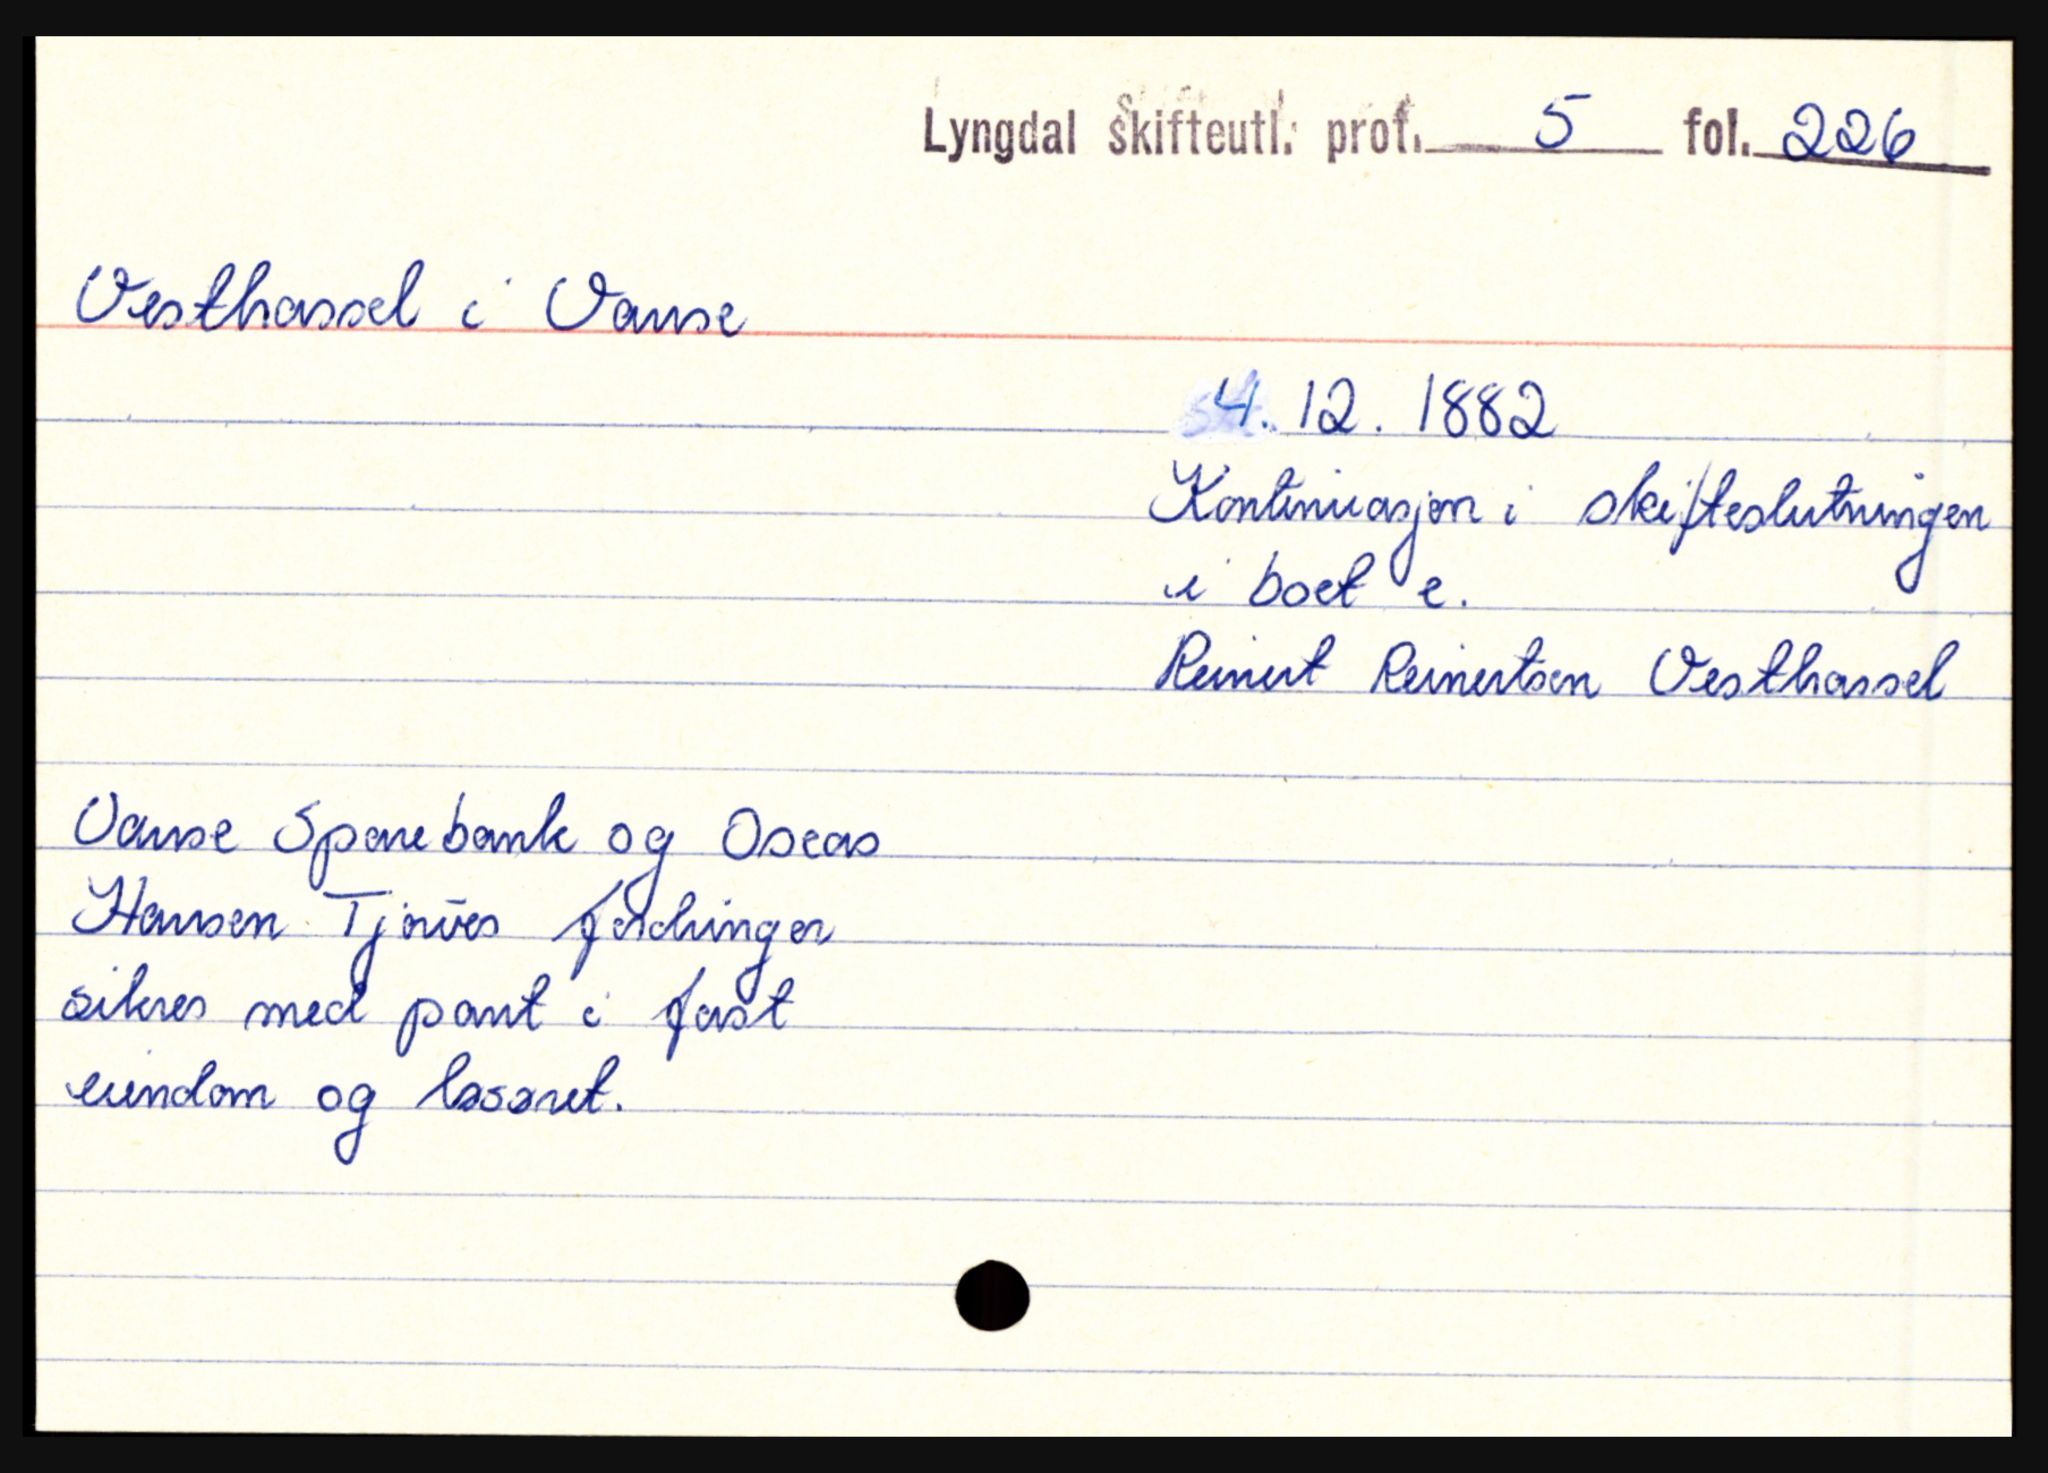 Lyngdal skifteutl.: prot. 5 fol. 226
Vesthassel i Vanse
4. 12. 1882
Kontinuasjon i skifteslutningen
i boet e.
Reinert Reinertsen Vesthassel
Vanse Sparebank og Oseas
Hansen Tjørves fordringer
sikres med pant i fast
eiendom og løsøret.